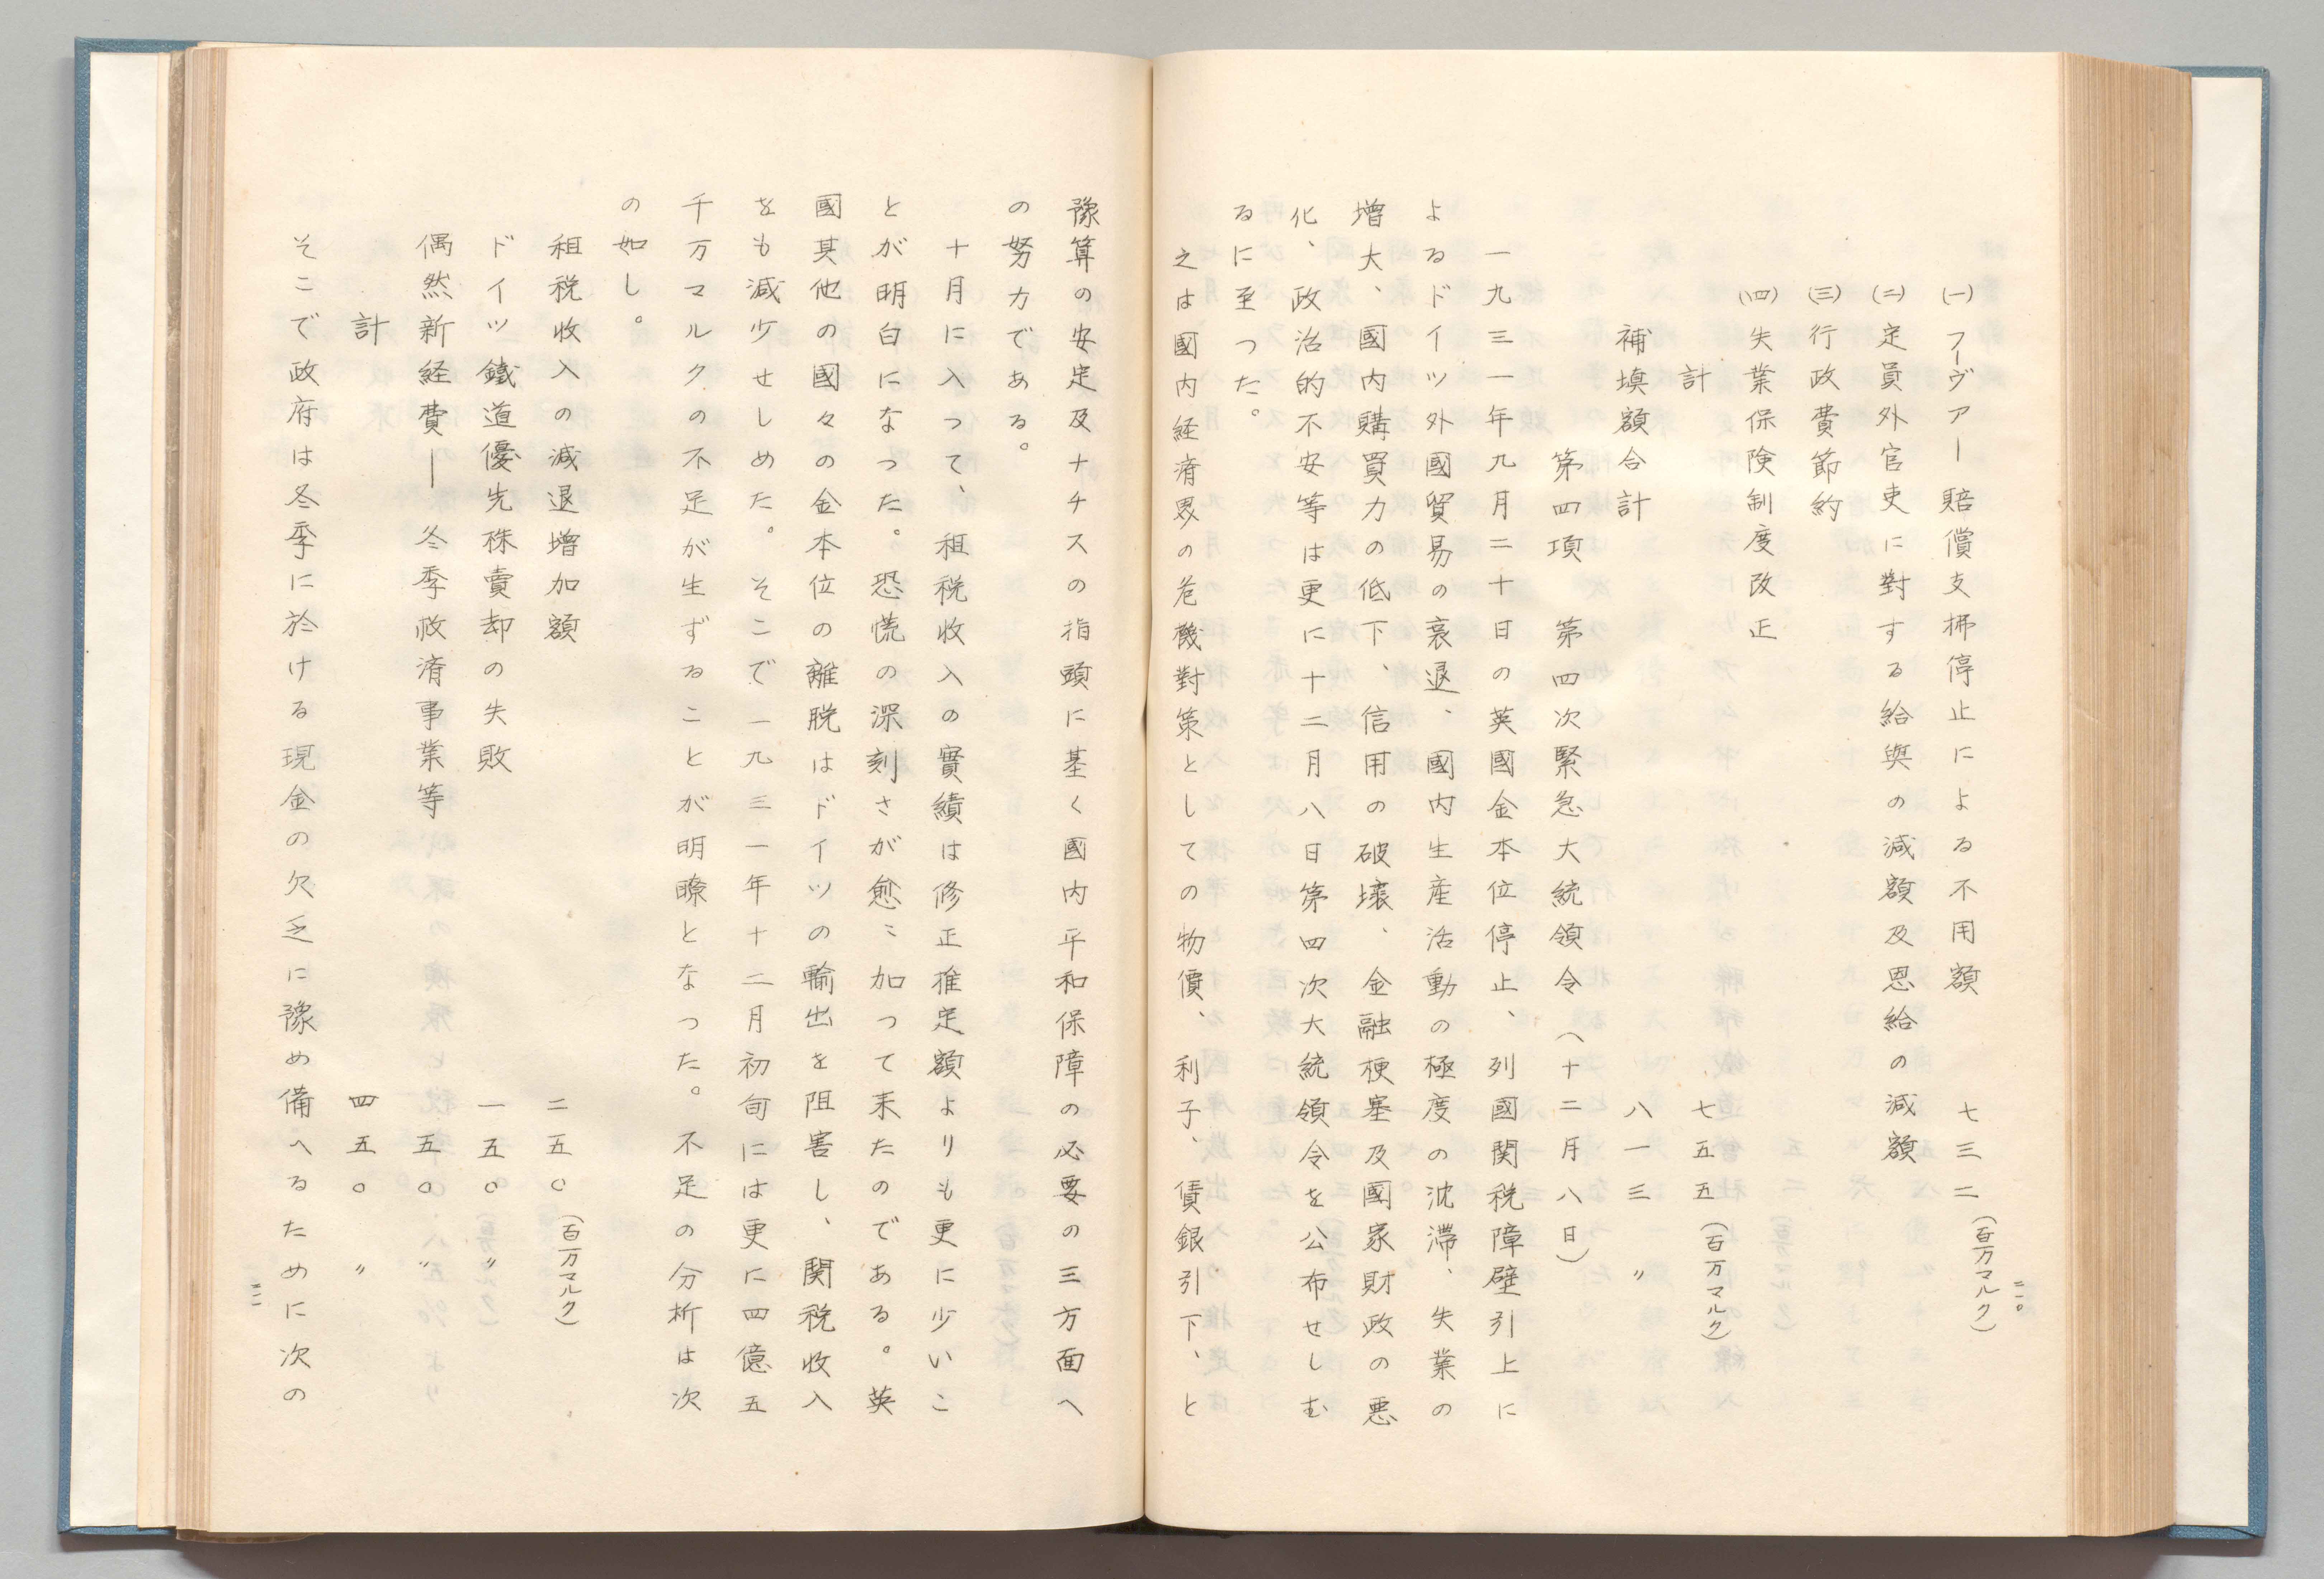 二一〇
(一)フーヴアー賠償支拂停止による不用額 七三二(百万マルク)
(二)定員外官吏に對する給與の減額及恩給の減額
(三)行政費節約
(四)失業保険制度改正
計 七五五(百万マルク)
補塡額合計 八一三 〃
第四項 第四次緊急大統領令(十二月八日)
一九三一年九月二十日の英國金本位停止、列國関税障壁引上に
よるドイツ外國貿易の衰退、國内生産活動の極度の沈滞、失業の
増大、國内購買力の低下、信用の破壊、金融梗塞及國家財政の悪
化、政治的不安等は更に十二月八日第四次大統領令を公布せしむ
るに至つた。
之は國内経済界の危機對策としての物價、利子、賃銀引下、と
豫算の安定及ナチスの指頭に基く國内平和保障の必要の三方面へ
の努力である。
十月に入つて、租税收入の實績は修正推定額よりも更に少いこ
とが明白になつた。恐慌の深刻さが愈〻加つて来たのである。英
國其他の國々の金本位の離脱はドイツの輸出を阻害し、関税收入
をも減少せしめた。そこで一九三一年十二月初旬には更に四億五
千万マルクの不足が生ずることが明瞭となつた。不足の分析は次
の如し。
租税收入の減退増加額 二五〇(百万マルク)
ドイツ鐵道優先株賣却の失敗 一五〇 〃
偶然新経費―冬季救済事業等 五〇 〃
計 四五〇 〃
そこで政府は冬季に於ける現金の欠乏に豫め備へるために次の
二一一